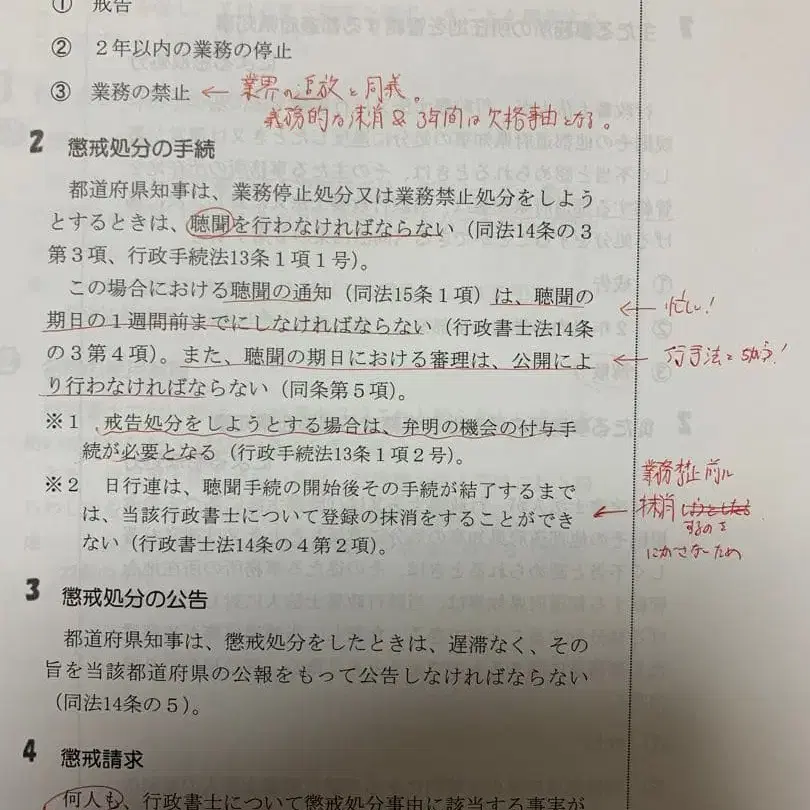 ① 戒告
② 2年以内の業務の停止
③ 業務の禁止 ← 業界の追放と同義。
義務的な抹消&3年間は欠格事由となる。
2 懲戒処分の手続
都道府県知事は、業務停止処分又は業務禁止処分をしよう
とするときは、聴聞を行わなければならない(同法14条の3
第3項、行政手続法13条1項1号)。
この場合における聴聞の通知(同法15条1項)は、聴聞の
期日の1週間前までにしなければならない(行政書士法14条
の3第4項)。また、聴聞の期日における審理は、公開によ
り行わなければならない(同条第5項)。
← 忙しい!
← 行手法と ちがう!
※1 戒告処分をしようとする場合は、弁明の機会の付与手
続が必要となる(行政手続法13条1項2号)。
※2 日行連は、聴聞手続の開始後その手続が結了するまで
は、当該行政書士について登録の抹消をすることができ
ない(行政書士法14条の4第2項)。
業務禁止前に
← 抹消
するのを
にがさないため
3 懲戒処分の公告
都道府県知事は、懲戒処分をしたときは、遅滞なく、その
旨を当該都道府県の公報をもって公告しなければならない
(同法14条の5)。
4 懲戒請求
何人も、行政書士について懲戒処分事由に該当する事実が